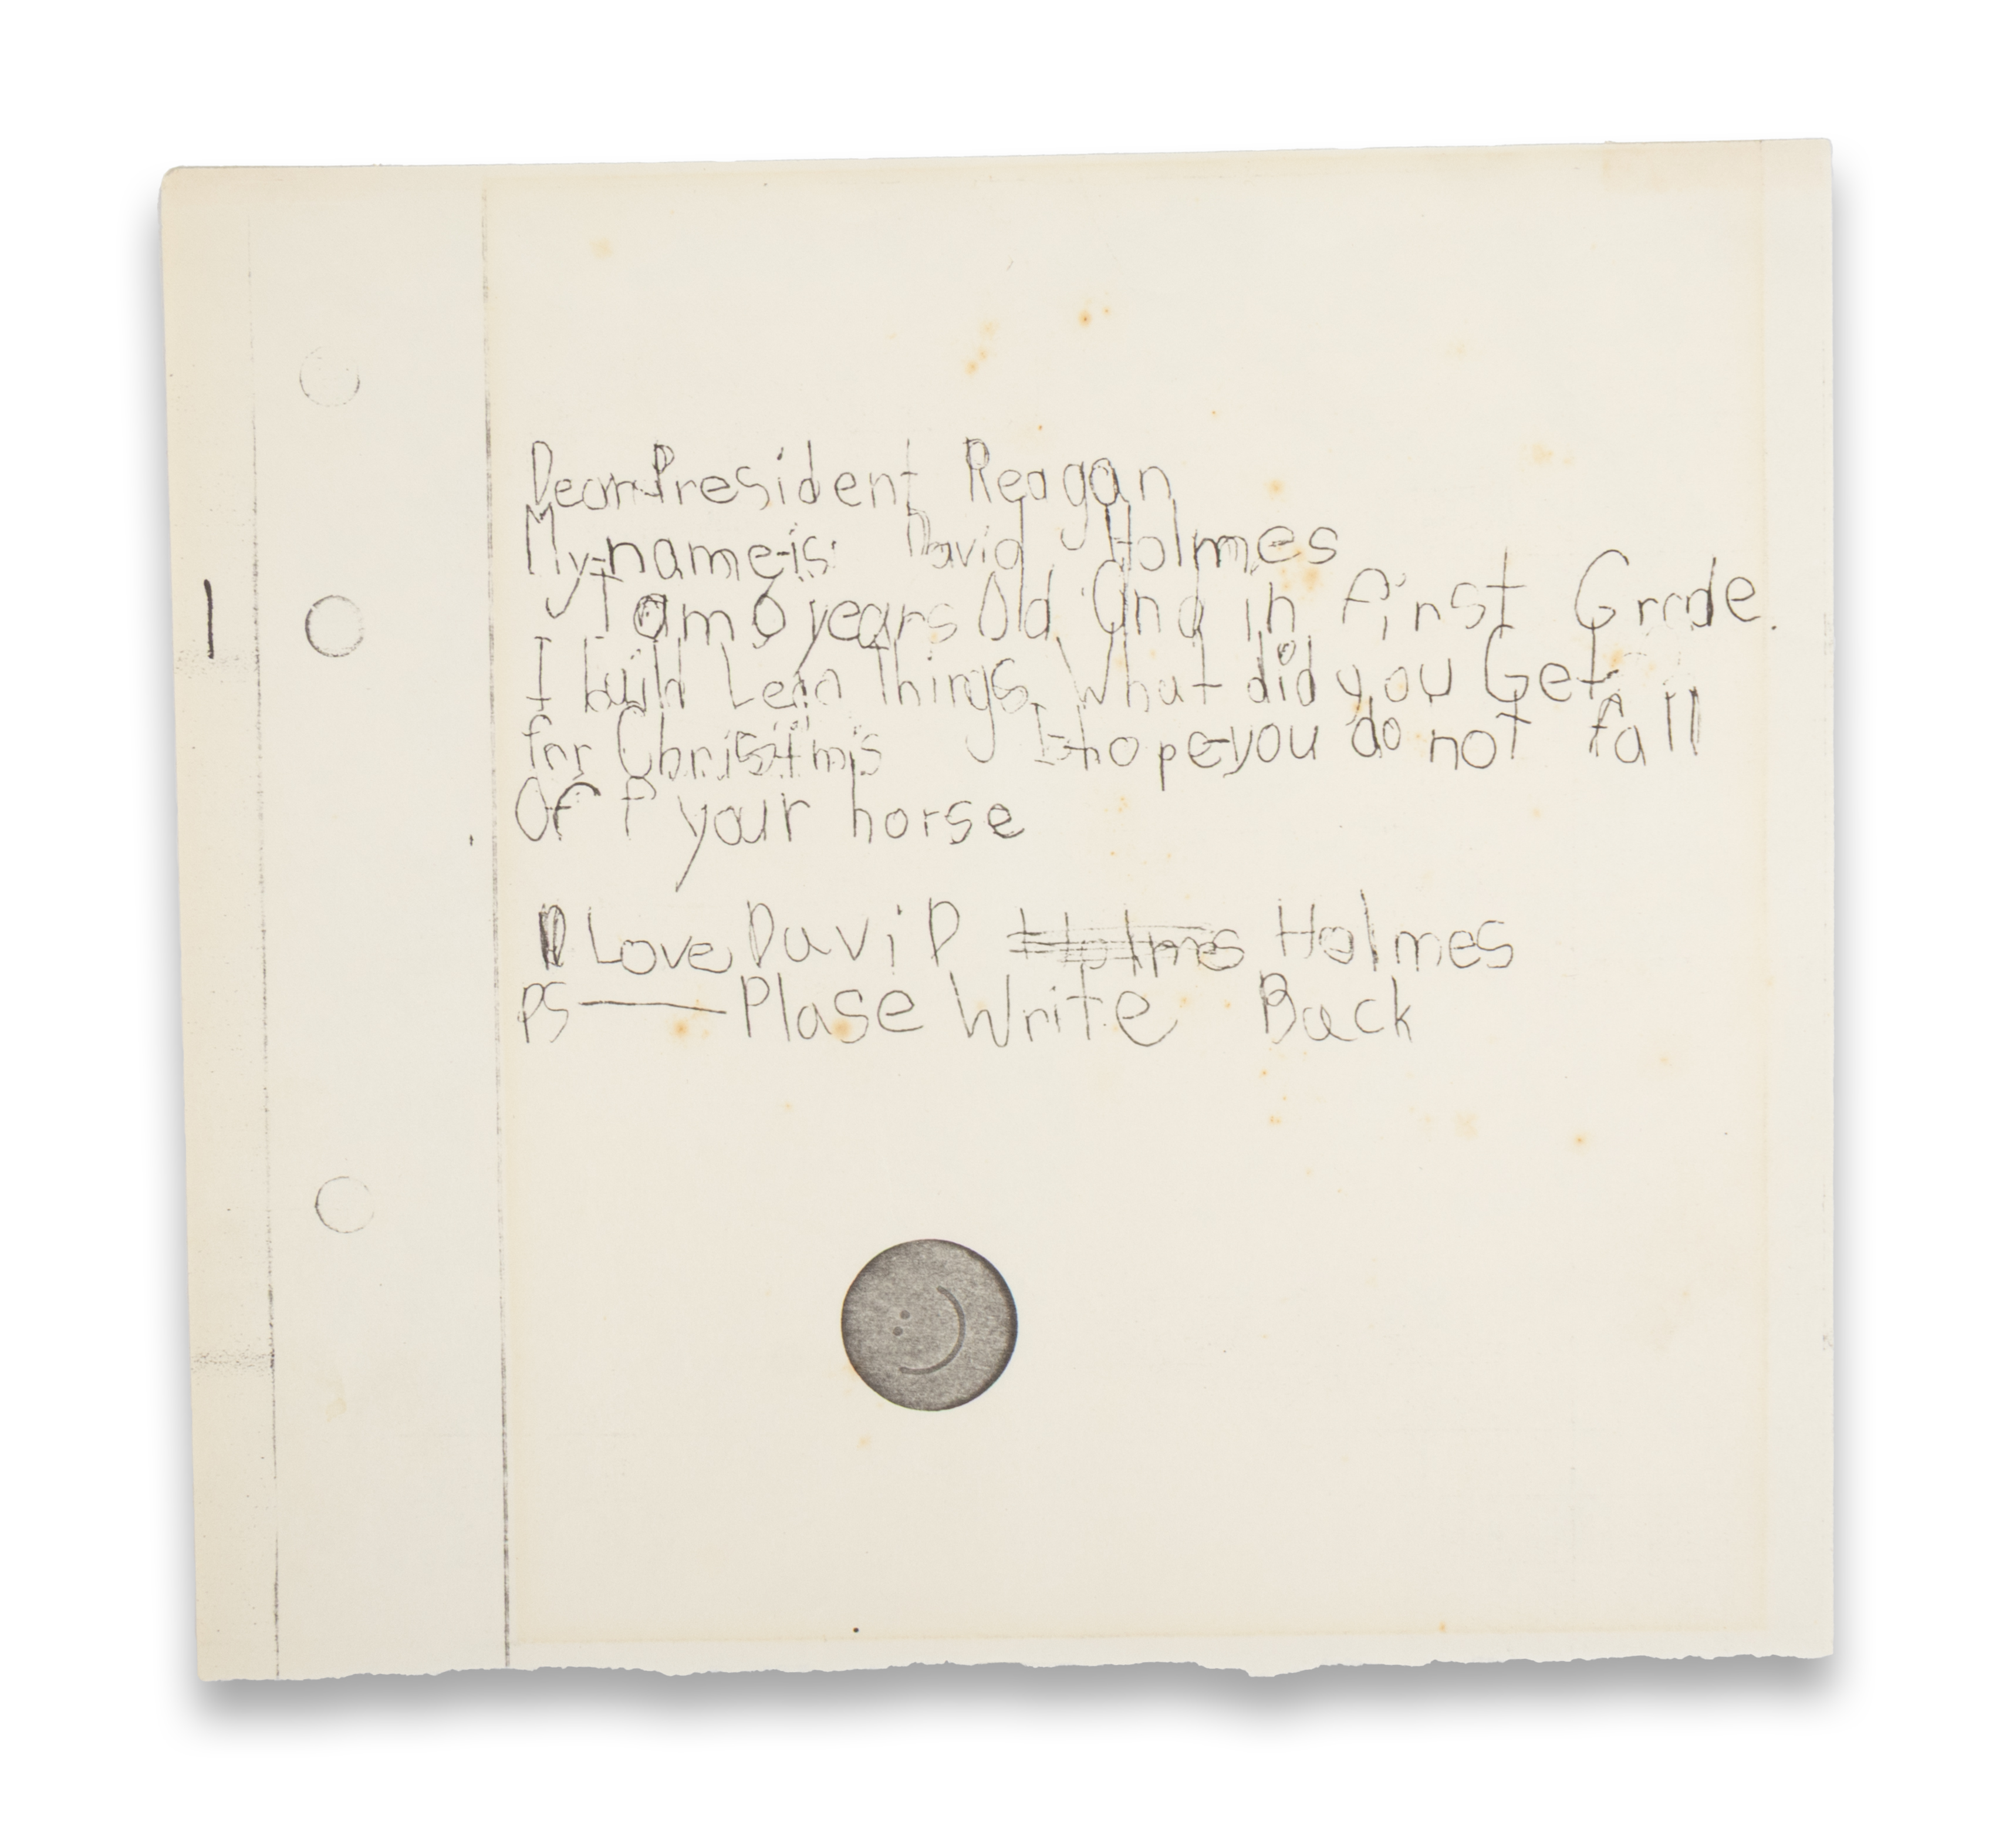 Dear President Reagan
My name is David Holmes
I am 6 years Old And in first Grade.
I build Lego things. What did you Get
for Christmis I hope you do not fall
Off your horse
Love DaviD Holmes Holmes
PS — Plase Write Back